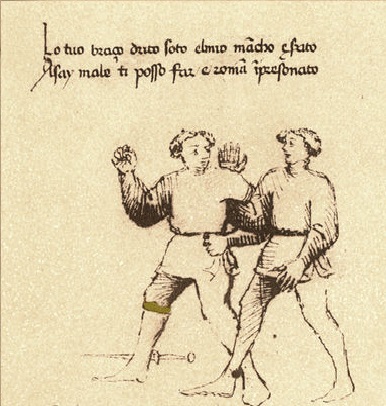 Lo tuo braço drito soto elmio mãcho e serato
Asay male ti posso far e romã ĩpresonato